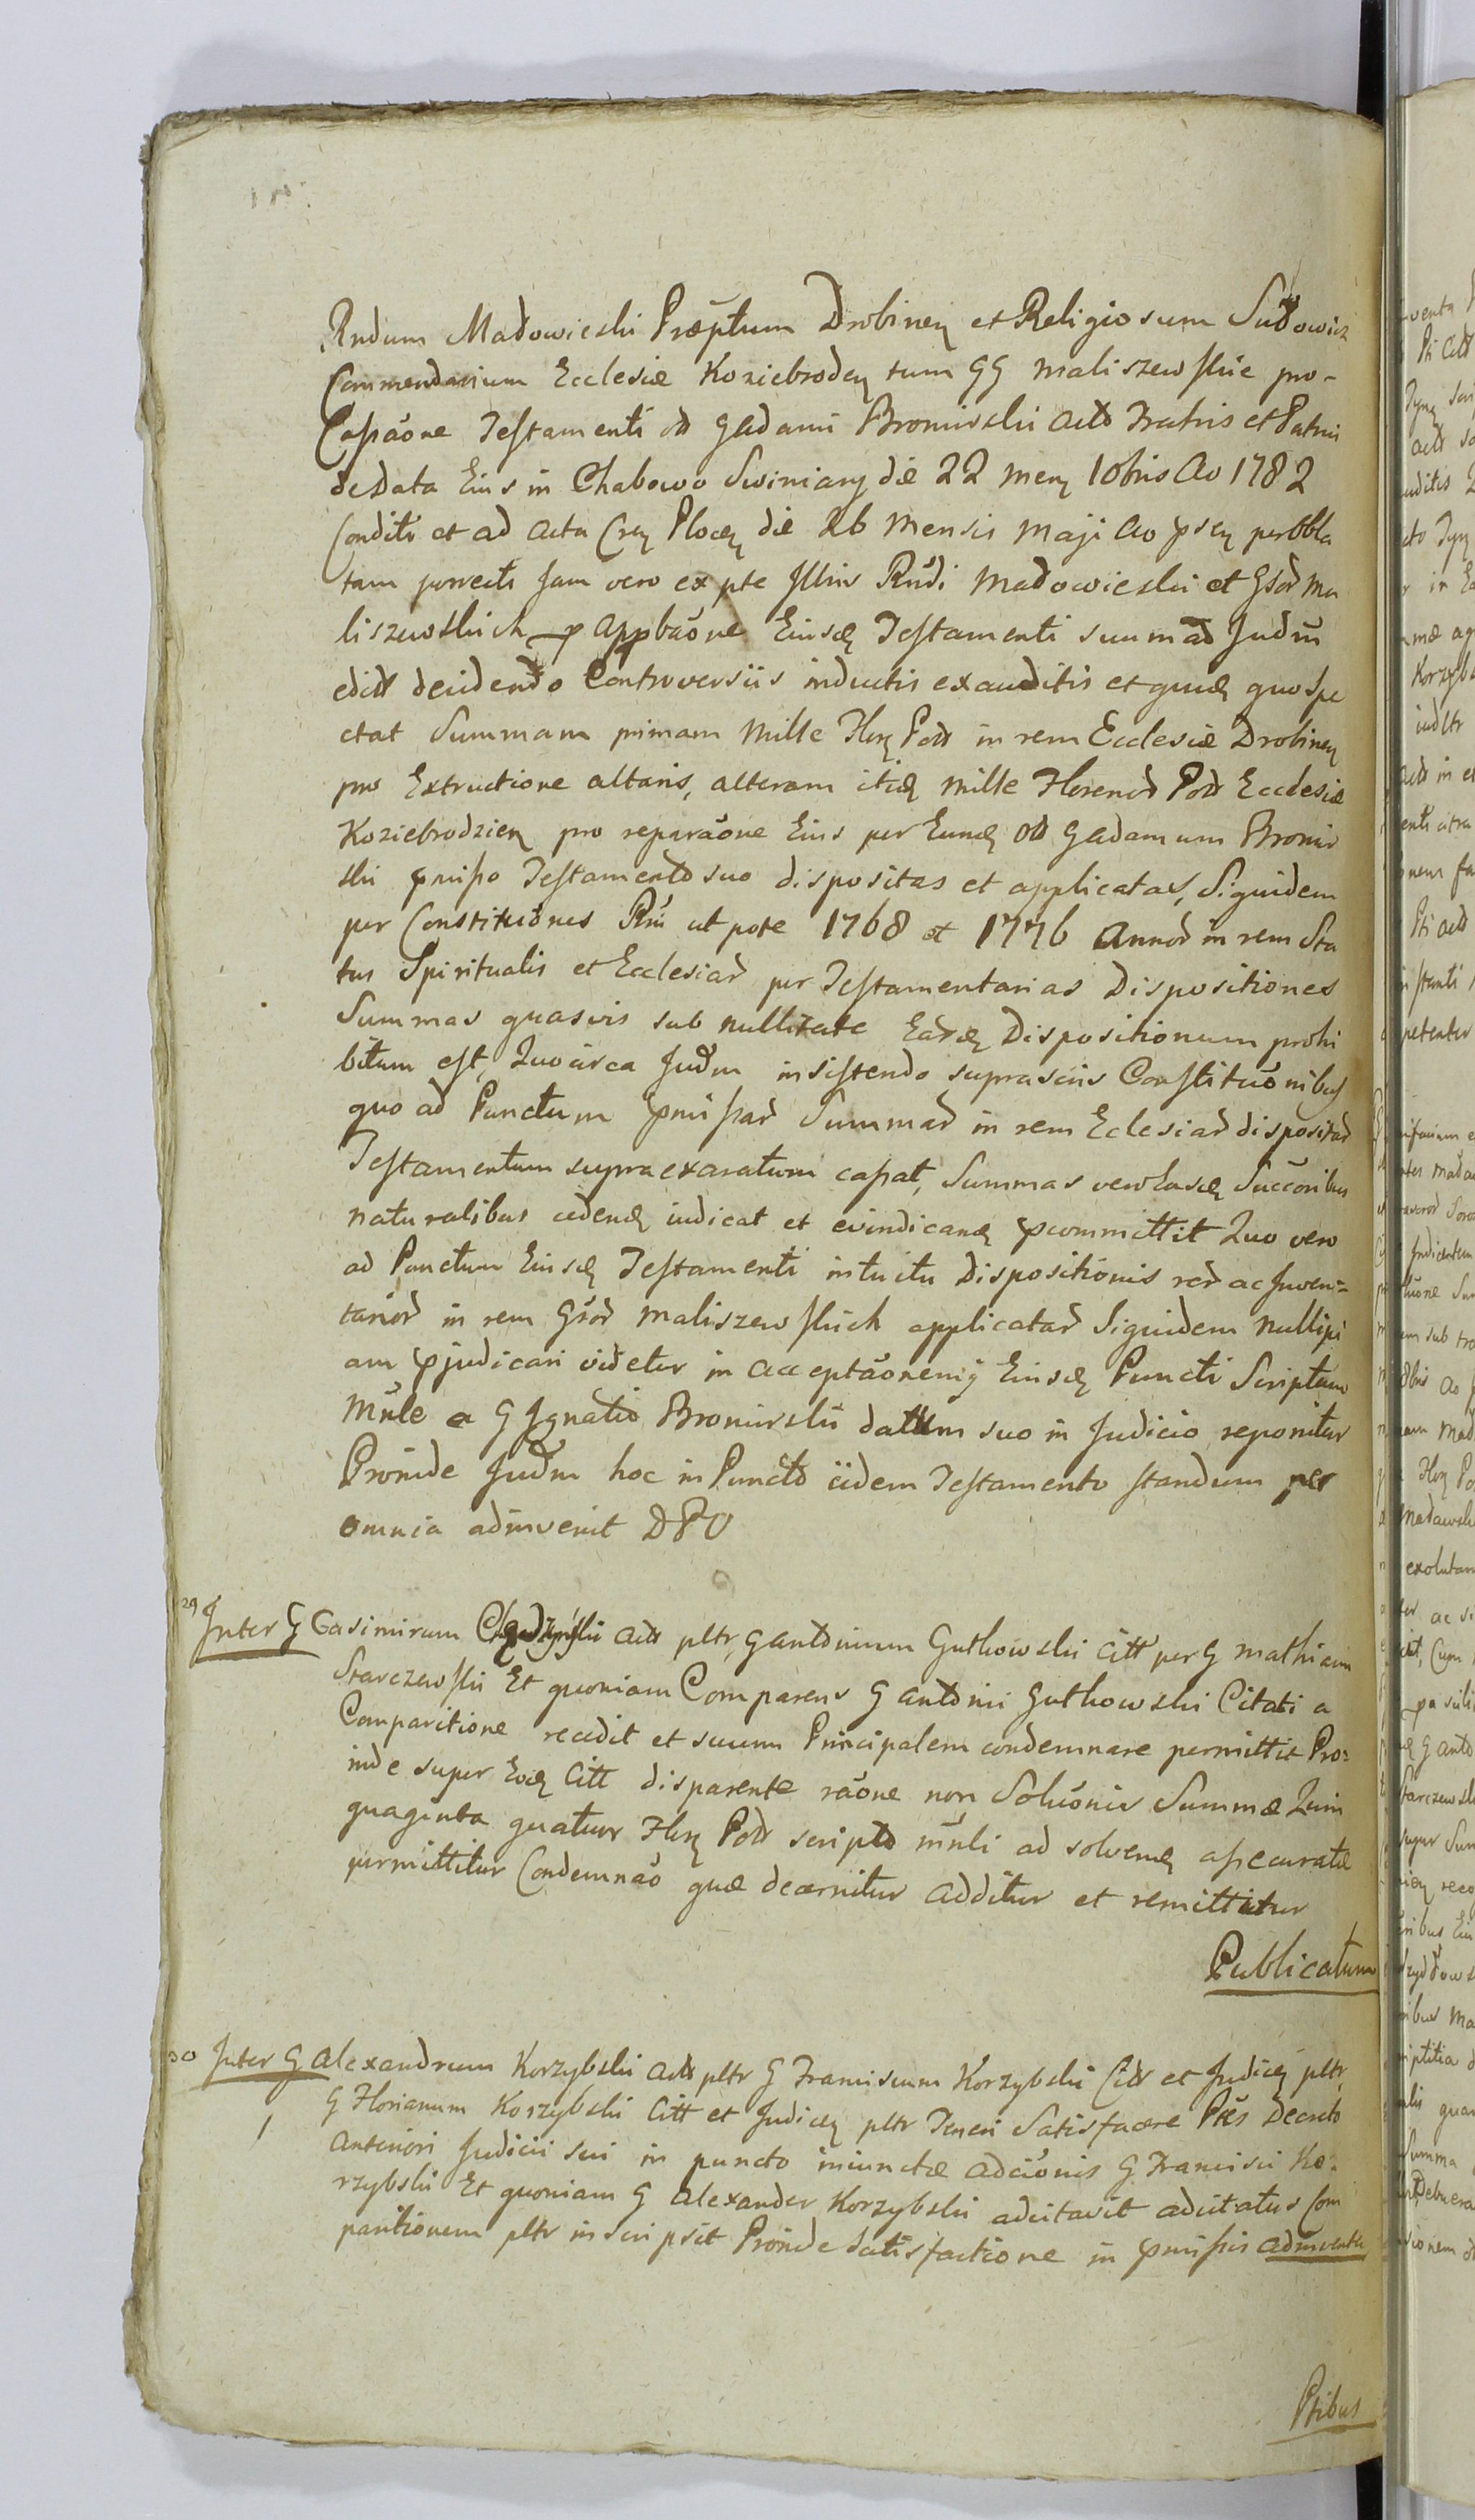 Rndum Madowieski Præptum Drobinen et Religiosum Sudowicz
Commendarium Ecclesiæ Koziebroden tum GG Maliszewskie pro-
Cassaõne Testamenti od G Adami Bromirski actt Fratris et Patrui
de Data Eius in Chabowo Swiniary die 22 Men 10bris Ao 1782
Conditi et ad Acta Cren Plocen die 26 Mensis Maji Ao psen per Obla
tam porrecti Jam vero ex pte Illius Rndi Madowieski et Gsor Ma
liszewskich p Appbaõne Eiusd Testamenti summad Judm
edict decidendo Controversiis inductis exauditis et quid quo Spe
ctat Summam primam Mille Flor Poll in rem Ecclesiæ Drobinen
pro Extructione altaris, alteram itid Mille Florenor Poll Ecclesiæ
Koziebrodzien pro reparaõne Eius per Eund od G Adamum Bromir
ski pmisso Testamento suo dispositas et applicatas, Siquidem
per Constituõnes Rni ut pote 1768 et 1776 Annor in rem Sta
tus Spiritualis et Ecclesiar per Testamentarias Dispositiones
Summas quasvis sub nullitate Eard Dispositionum prohi
bitum est, Quo circa Judm insistendo suprascris Constituõnibus
quo ad Punctum pmissar Summar in rem Eclesiar dispositar
Testamentum supra exaratum cassat, Summas vero Easd Succoribus
naturalibus cedend iudicat et evindicand pcommittit Quo vero
ad Punctum Eiusd Testamenti intuitu Dispositionis rer ac Inven=
tarior in rem Gsor Maliszewskich applicatar Siquidem nullipi
am pjudicari videtur in acceptaõnemq Eiusd Puncti Scriptum
Mnle a G Ignatio Bromirski datum suo in Judicio reponitur
Proinde Judm hoc in Puncto iidem Testamento standum per
omnia adinvenit DPO
29 Inter G Casimirum actt pltr, G Antonium Gutkowski Citt per G Mathiam
Starczewski Et quoniam Comparens G Antonii Gutkowski Citati a
Comparitione recedit et suum Principalem condemnare permittit Pro=
inde super Eod Citt disparente raõne non Soluõnis Summæ Quin
quaginta quatuor Flor Poll scripto mnli ad solvend assecuratæ
permittitur Condemnaõ quæ decernitur additur et remittitur
Publicatum
30 Inter G Alexandrum Korzybski actt pltr G Franciscum Korzybski Citt et Judicq pltr
G Florianum Korzybski Citt et Judicq pltr Teneri Satisfacere Ptes Decreto
anteriori Judicii sui in puncto iniunctæ adciõnis G Francisci Ko=
rzybski Et quoniam G Alexander Korzybski adcitavit adcitatus Com
paritionem pltr inscripsit Proinde Satisfactione in pmissis adinventa
Ptibus